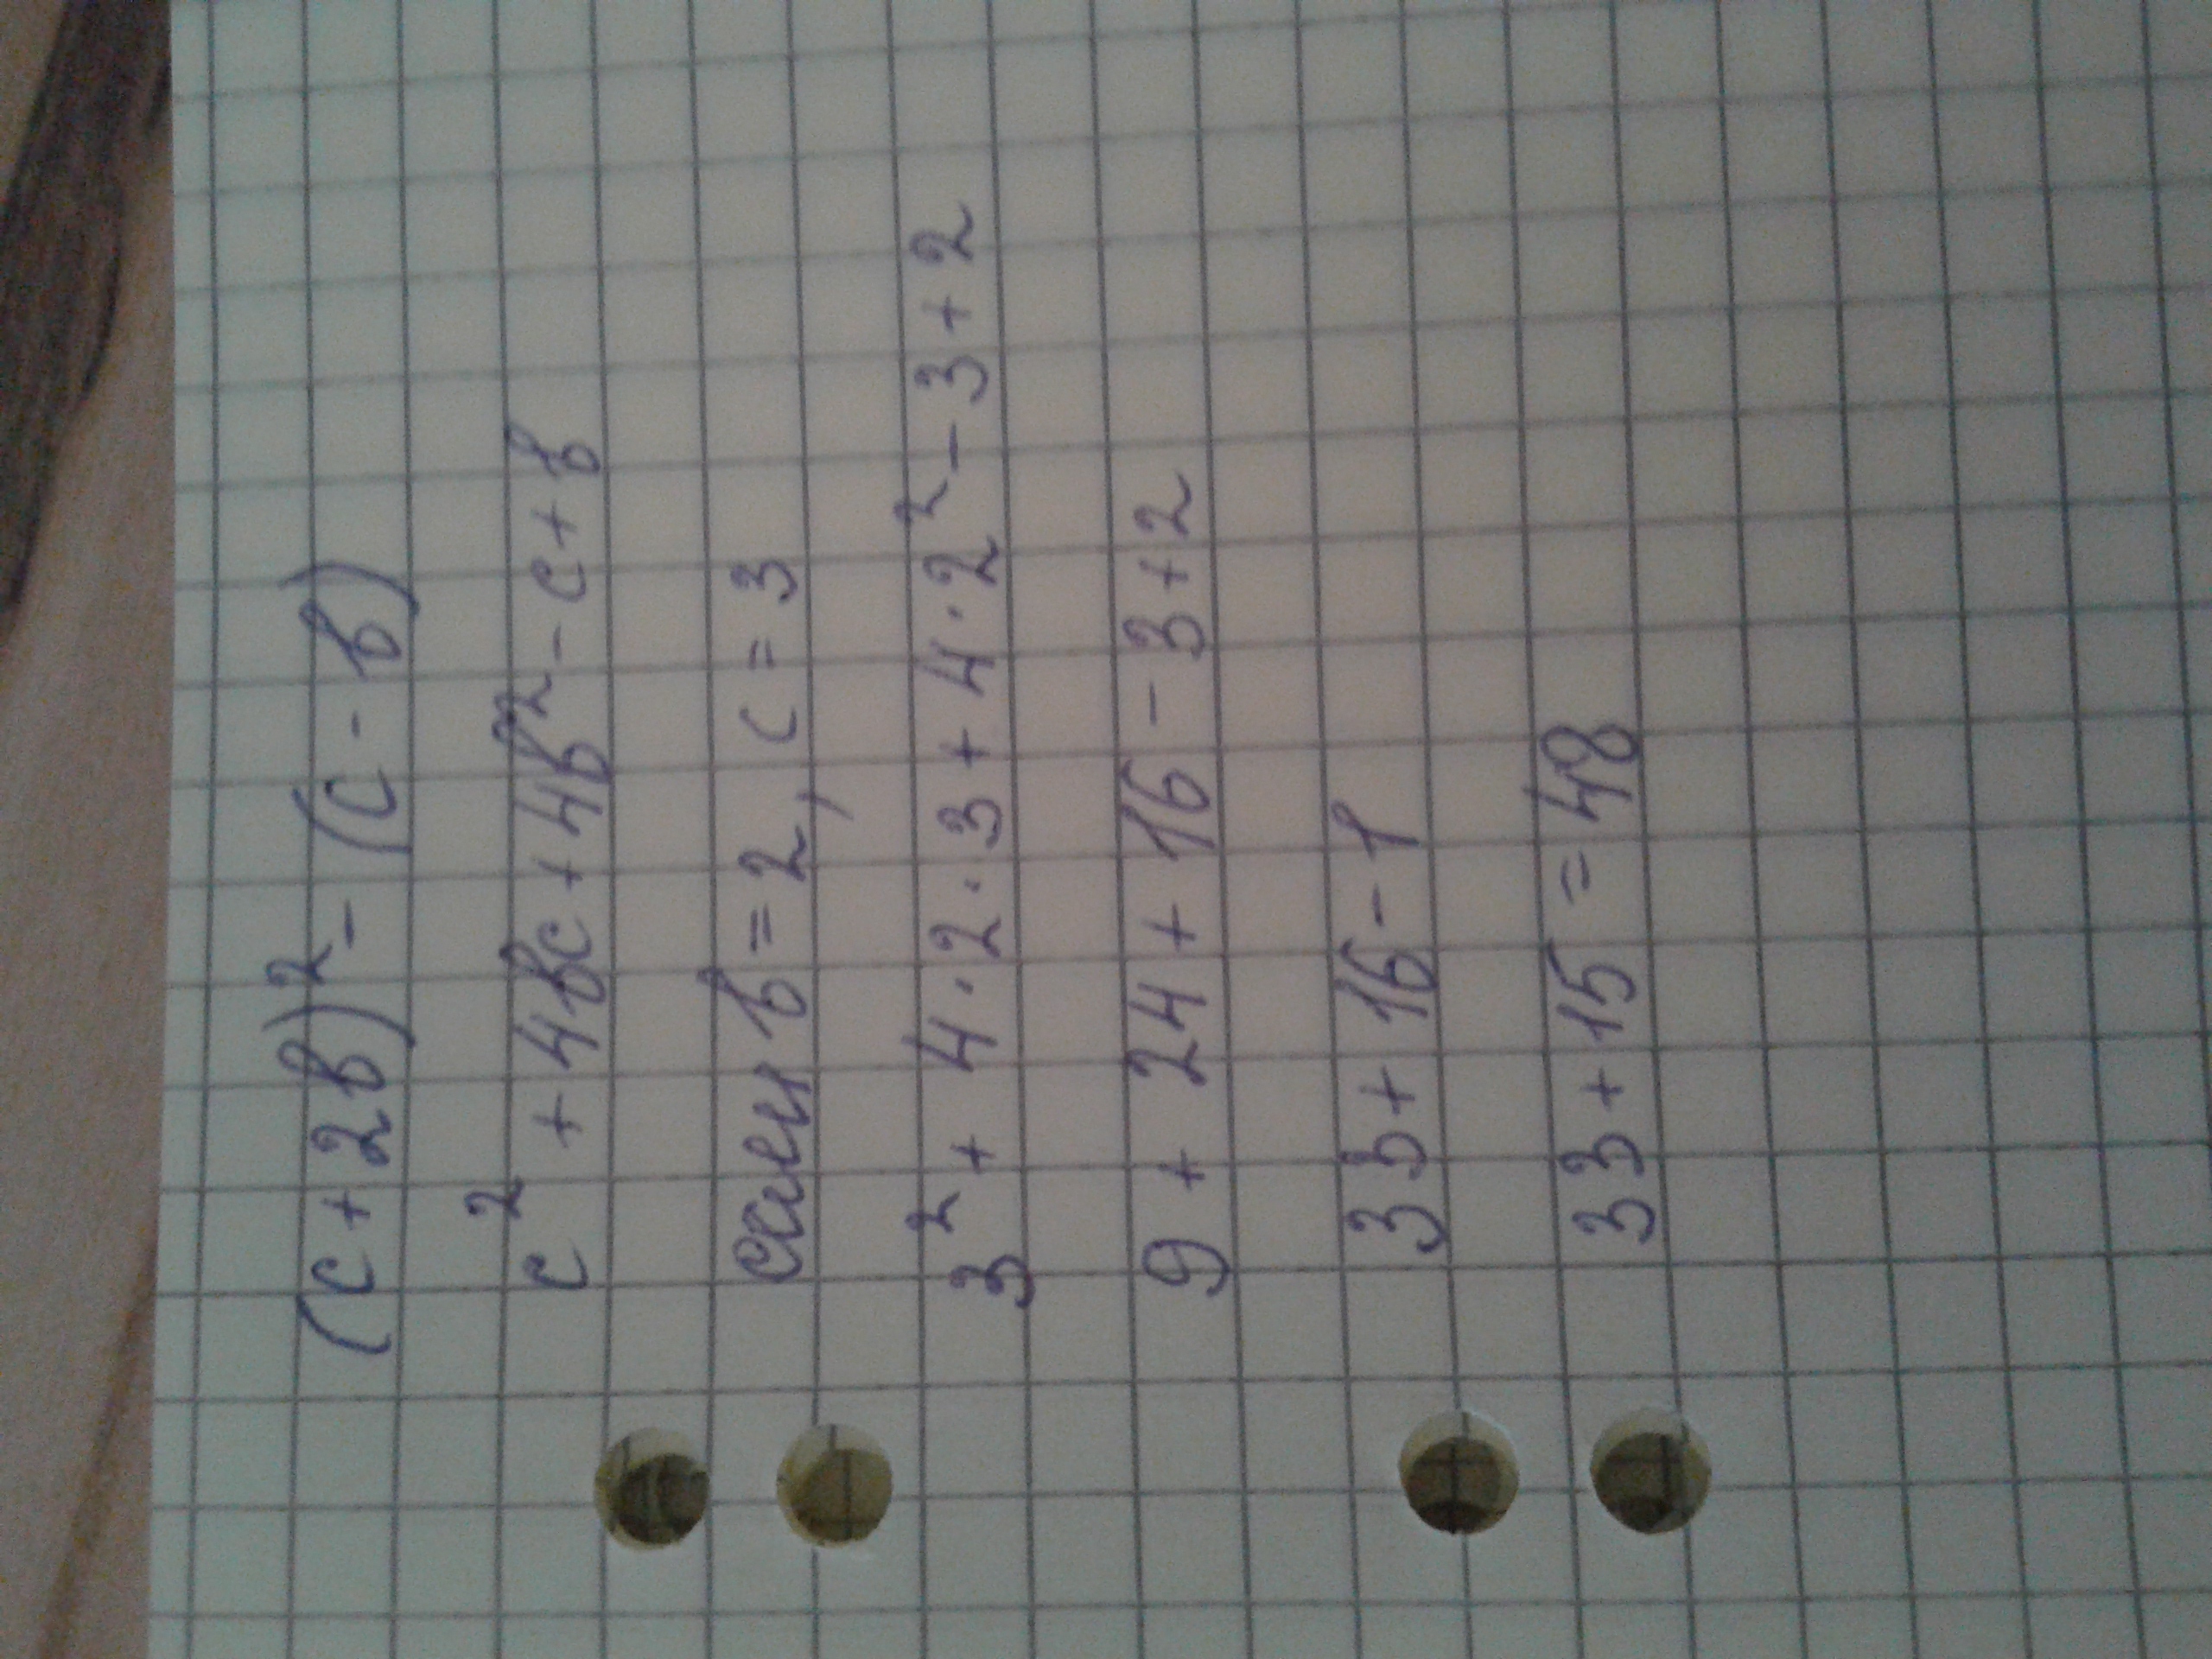 (c+2в)²-(c-в)
c²+4вc+4в²-c+в
если в=2, c=3
3²+4·2·3+4·2²-3+2
9+24+16-3+2
33+16-1
33+15=48